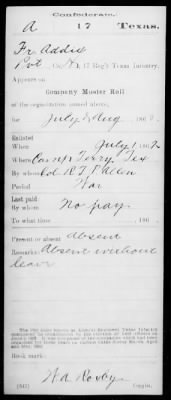 Confederate.
A 17 Texas.
Fr Addie
Pvt, Co. H, 17 Reg't Texas Infantry.
Appears on
Company Muster Roll
of the organization named above,
for July & Aug, 186
Enlisted:
When July 1, 1862
Where Camp Terry, Tex
By whom Col. R T P Allen
Period War
Last paid:
By whom No pay
To what time , 186 .
Present or absent Absent
Remarks: Absent without
leave
Book mark:
W A Rooby
(642) Copyist.